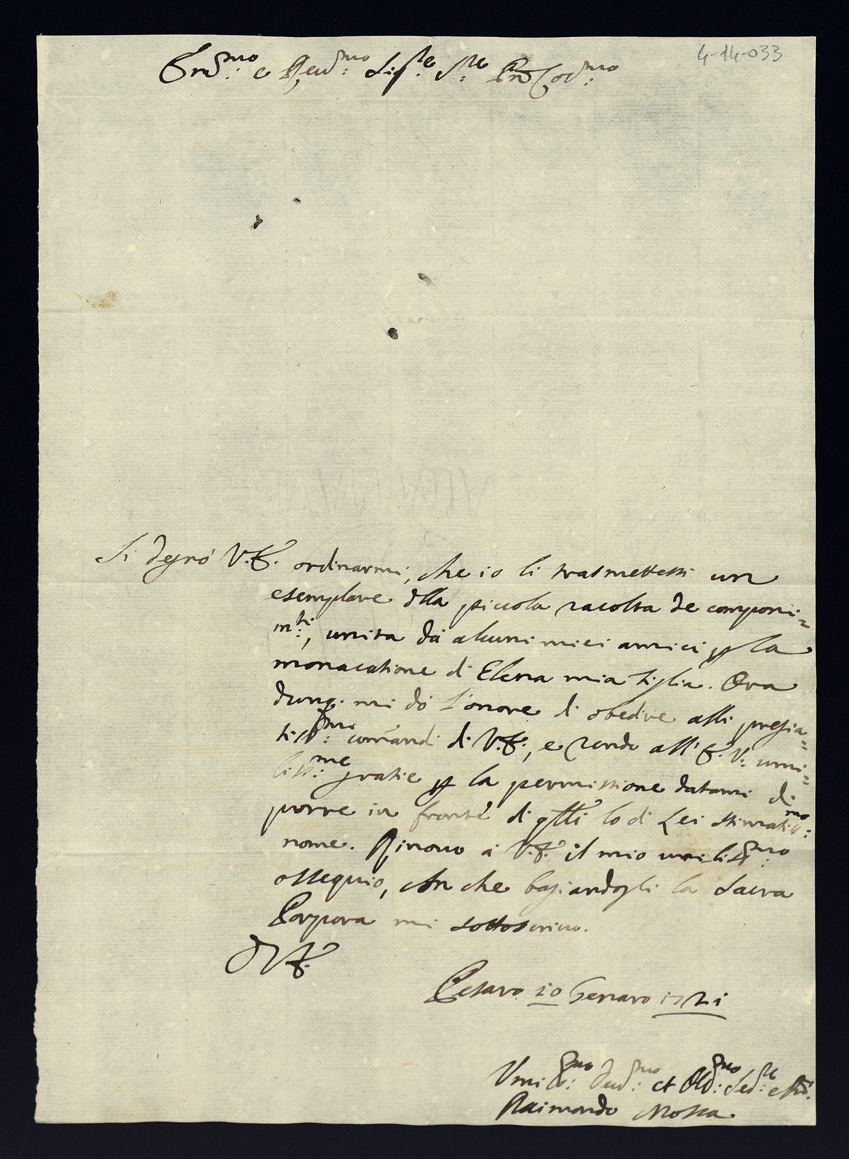 4-14-033
Em.mo e Rev.mo Sig.re S.re Pn̄e Col.mo
Si degnò V.E. ordinarmi, che io li trasmettessi un
esemplare dlla piccola racolta de componi=
m.ti, unita da alcuni miei amici p la
monacatione di Elena mia figlia. Ora
dunq. mi dò l'onore di obedire alli pregia=
tiss.mi comandi di V.E., e rendo all'E.V. umi=
liss.me gratie p la permissione datami di
porre in fronte di qlli lo di Lei stimatis.mo
nome. Rinovo à V.E. il mio umiliss.mo
ossequio, con che bagiandogli la Sacra
Porpora mi sottoscrivo.
D V.E.
Pesaro 10 Genaro 1721
Umiliss.mo Dev.mo et Obl.mo
Raimondo Mosca